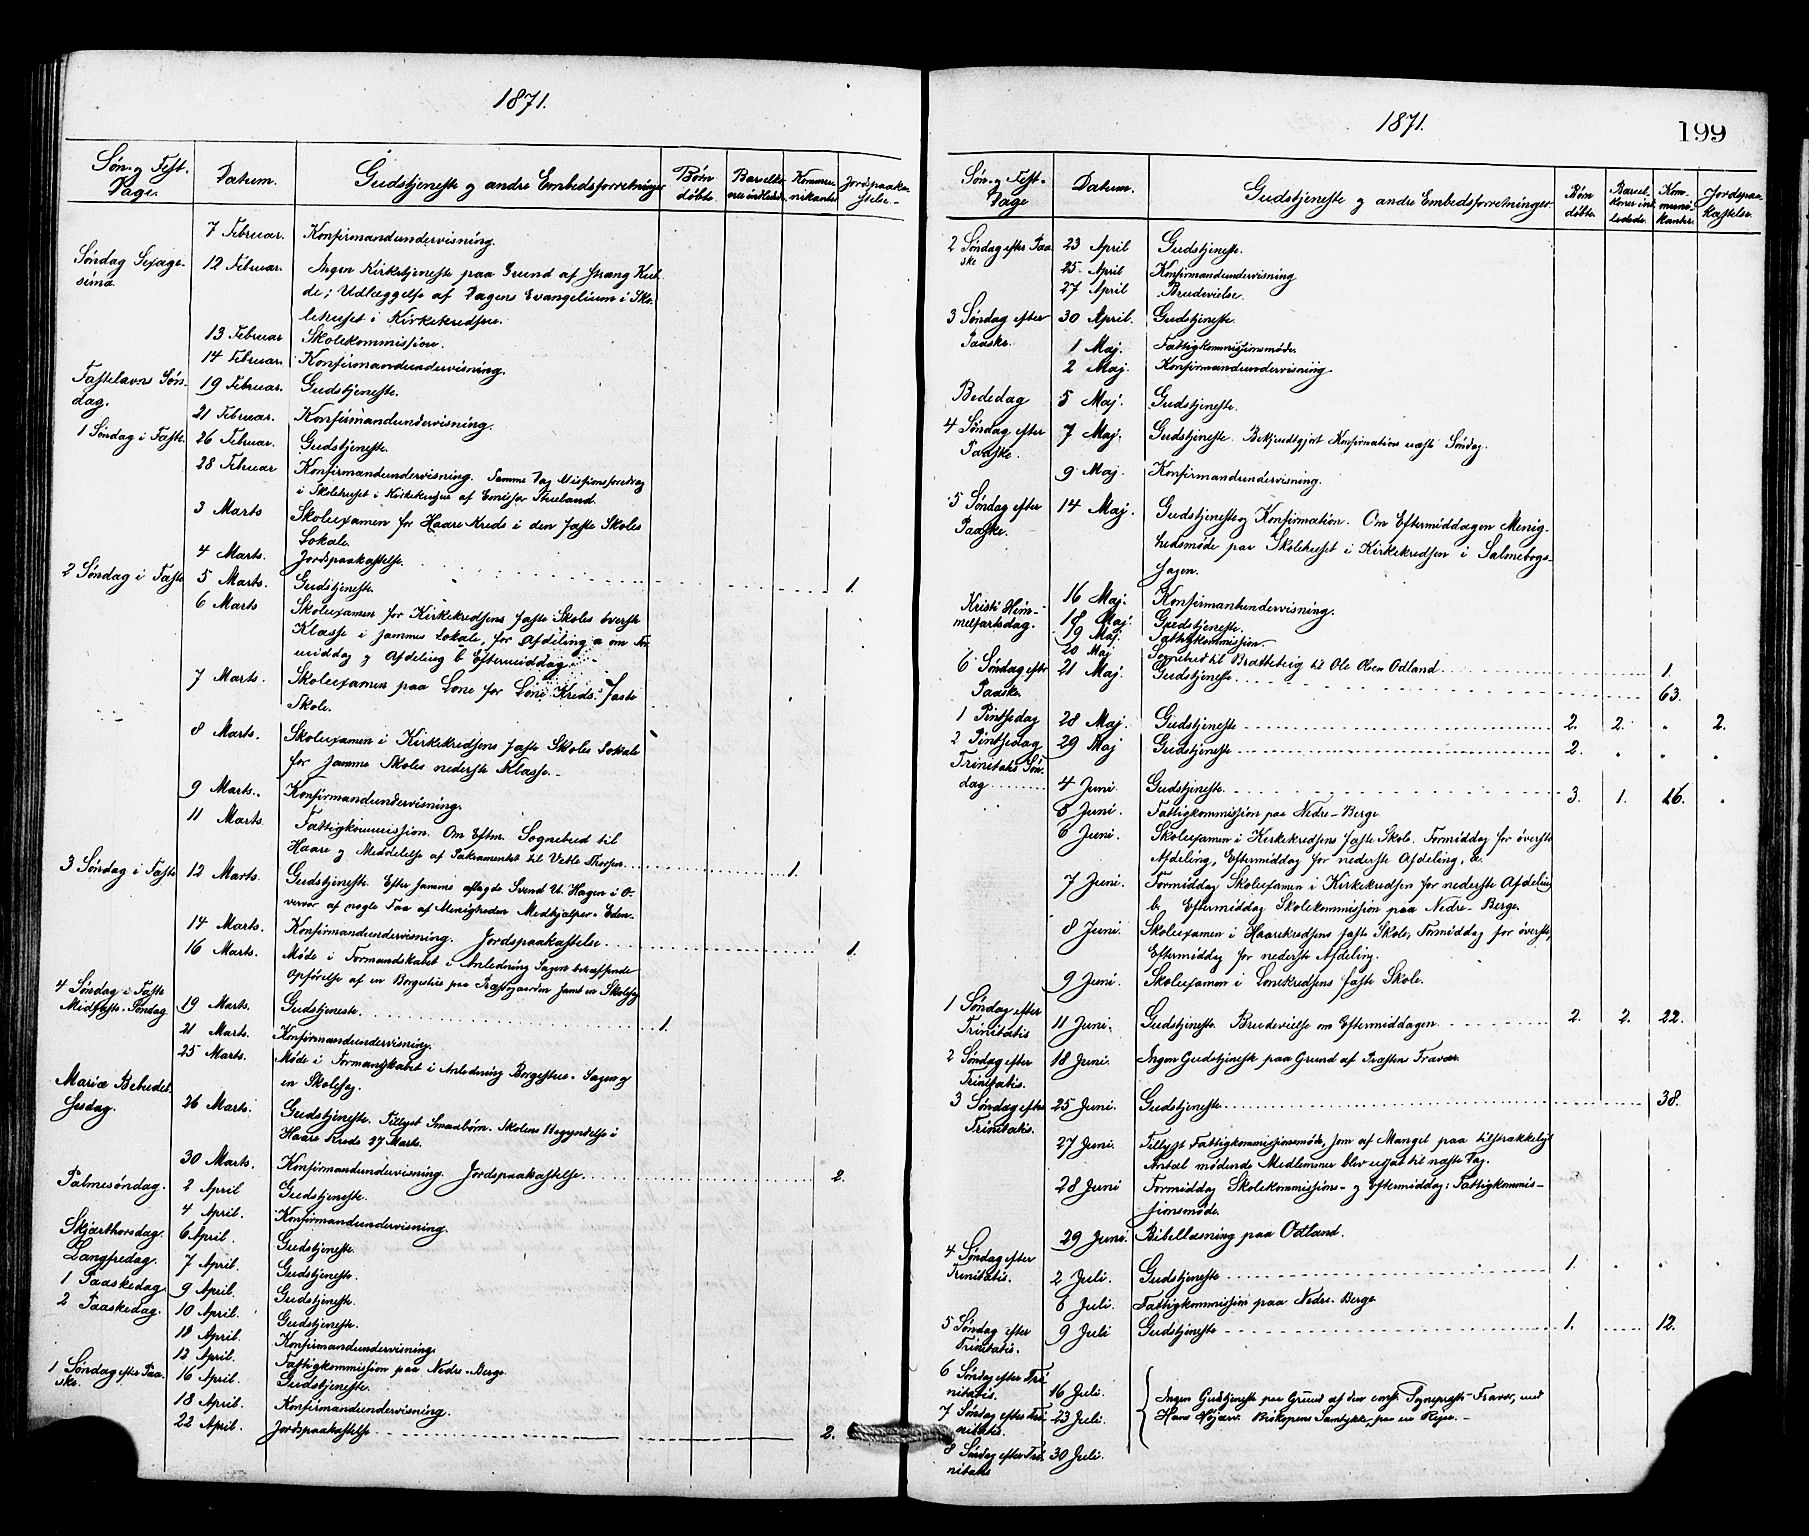 1871.
Søn- og Fest-Dage. Datum. Gudstjeneste og andre Embedsforretninger Børn døbte Barselkoner indledede Kommunikanter Jordspaakastelse.
7 Februar. Konfirmandundervisning.
Søndag Sexage- 12 Februar. Ingen Kirketjeneste paa Grund af streng Kul-
sima. de; Udlæggelse af Dagens Evangelium i Sko-
lehuset i Kirkekredsen.
13 Februar Skolekommission.
14 Februar. Konfirmandundervisning.
Fastelavns Søn- 19 Februar. Gudstjeneste.
dag.
21 Februar. Konfirmandundervisning.
1 Søndag i Faste. 26 Februar. Gudstjeneste.
28 Februar Konfirmandundervisning. Samme Dag Missionsforedrag
i Skolehuset i Kirkekredsen af Emissær
3 Marts Skoleexamen for Haare Kreds i den faste Skoles
Lokale.
4 Marts. Jordspaakastelse. 1.
2 Søndag i Faste 5 Marts. Gudstjeneste.
6 Marts Skoleexamen for Kirkekredsens faste Skoles øverste
Klasse i samme Lokale, for Afdeling a om For-
middag og Afdeling b Eftermiddag.
7 Marts. Skoleexamen paa Lone for Lone Kreds. faste
Skole.
8 Marts. Skoleexamen i Kirkekredsens faste Skoles Lokale
for samme Skoles nederste Klasse.
9 Marts. Konfirmandundervisning.
11 Marts. Fattigkommission. Om Efterm. Sognebud til
Haare og Meddelelse af Sakramentet til Thorsen. 1.
3 Søndag i Faste 12 Marts. Gudstjeneste. Efter samme aflagde Svend U. Hagen i O-
vervær af nogle Faa af Menigheden Medhjælper-Eden.
14 Marts. Konfirmandundervisning. Jordspaakastelse. 1.
16 Marts. Møde i Formandskabet i Anledning Sagen betræffende
Opførelse af en Borgestue paa Præstegaarden samt en Skolesag
4 Søndag i Faste
Midfaste-Søndag 19 Marts. Gudstjeneste. 1.
21 Marts. Konfirmandundervisning.
25 Marts. Møde i Formandskabet i Anledning Borgestue-Sagen og
en Skolesag.
Mariæ Bebudel-
sesdag. 26 Marts. Gudstjeneste. Tillyst Smaabørn. Skolens Begyndelse i
Haare Kreds 27 Marts.
30 Marts. Konfirmandundervisning. Jordspaakastelse. 2.
Palmesøndag. 2 April Gudstjeneste.
4 April. Konfirmandundervisning.
Skjærthorsdag. 6 April. Gudstjeneste.
Langfredag. 7 April. Gudstjeneste.
1 Paaskedag 9 April. Gudstjeneste.
2 Paaskedag. 10 April. Gudstjeneste.
April. Konfirmandundervisning.
12 April. Fattigkommission paa Nedre-Berge.
1 Søndag efter Paa- 16 April. Gudstjeneste.
ske.
18 April. Konfirmandundervisning.
22 April. Jordspaakastelse 2.
1871.
199
Søn- og Fest-Dage Datum. Gudstjeneste og andre Embedsforretninger Børn døbte Barselkoner indledede Kommunikanter. Jordspaakastelse.
2 Søndag efter Paa- 23 April Gudstjeneste.
ske 25 April Konfirmandundervisning
27 April Brudevielse.
3 Søndag efter 30 April. Gudstjeneste.
Paaske. 1 Maj. Fattigkommissionsmøde.
2 Maj. Konfirmandundervisning
Bededag 5 Maj. Gudstjeneste.
4 Søndag efter 7 Maj. Gudstjeneste. Bekjendtgjort Konfirmation næste Søndag.
Paaske. 9 Maj. Konfirmandundervisning.
5 Søndag efter 14 Maj. Gudstjeneste og Konfirmation. Om Eftermiddagen Menig-
Paaske. hedsmøde paa Skolehuset i Kirkekredsen i Salmebogs-
sagen.
16 Maj. Konfirmantundervisning.
Kristi Him- 18 Maj. Gudstjeneste.
melfartsdag. 19 Maj Fattigkommission.
20 Maj Sognebud til Bratteteig til Ole Olsen Odland. 1.
6 Søndag efter 21 Maj. Gudstjeneste. 63.
Paaske.
1 Pintsedag 28 Maj. Gudstjeneste 2. 2. " 2.
2 Pintsedag 29 Maj Gudstjeneste 2. " " "
Trinitatis Søn-
dag 4 Juni. Gudstjeneste. 3. 1. 26. "
5 Juni. Fattigkommission paa Nedre-Berge.
6 Juni. Skoleexamen i Kirkekredsens faste Skole. Formiddag for øverste
Afdeling, Eftermiddag for nederste Afdeling, a.
7 Juni. Formiddag Skoleexamen i Kirkekredsen for nederste Afdeling
b. Eftermiddag Skolekommission paa Nedre-Berge.
8 Juni. Skoleexamen i Haarekredsens faste Skole, Formiddag for øverste,
Eftermiddag for nederste Afdeling.
9 Juni. Skoleexamen i Lonekredsens faste Skole.
1 Søndag efter
Trinitatis 11 Juni. Gudstjeneste. Brudevielse om Eftermiddagen 2. 2. 22.
2 Søndag efter 18 Juni. Ingen Gudstjeneste paa Grund af Præstens Fravær.
Trinitatis.
3 Søndag efter 25 Juni. Gudstjeneste 38.
Trinitatis.
27 Juni. Tillyst Fattigkommissionsmøde, som af Mangel paa tilstrækkeligt
Antal mødende Medlemmer blev udsat til næste Dag.
28 Juni Formiddag Skolekommissions- og Eftermiddag: Fattigkommis-
sionsmøde.
29 Juni. Bibellæsning paa Odland.
4 Søndag efter
Trinitatis. 2 Juli. Gudstjeneste 1. " "
8 Juli. Fattigkommission paa Nedre-Berge
5 Søndag efter 9 Juli Gudstjeneste 1. 12.
Trinitatis.
6 Søndag efter Tri-
nitatis. 16 Juli. Ingen Gudstjeneste paa Grund af den const. Sognepræsts Fravær, med
7 Søndag efter Tri- 23 Juli. Hans Højærv. Biskopens Samtykke, paa en Rejse.
nitatis.
8 Søndag efter Tri- 30 Juli.
nitatis